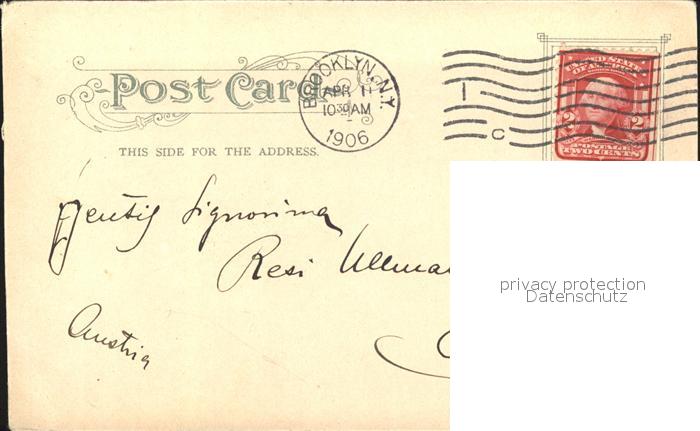 POST CARD
BROOKLYN, N.Y.
APR 11
10 30 AM
1906
1
C
UNITED STATES
OF AMERICA
2 2
POSTAGE
TWO CENTS
THIS SIDE FOR THE ADDRESS.
Gentil Signorina
Resi Ullma
Austria
privacy protection
Datenschutz